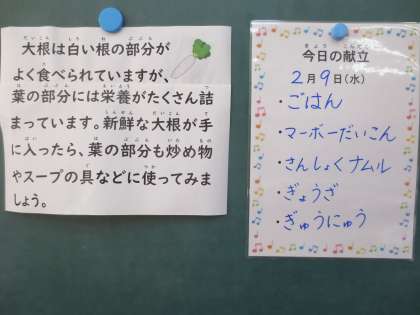 大根は白い根の部分が
よく食べられていますが、
葉の部分には栄養がたくさん詰
まっています。新鮮な大根が手
に入ったら、葉の部分も炒め物
やスープの具などに使ってみま
しょう。
今日の献立
2月9日(水)
・ごはん
・マーボーだいこん
・さんしょくナムル
・ぎょうざ
・ぎゅうにゅう